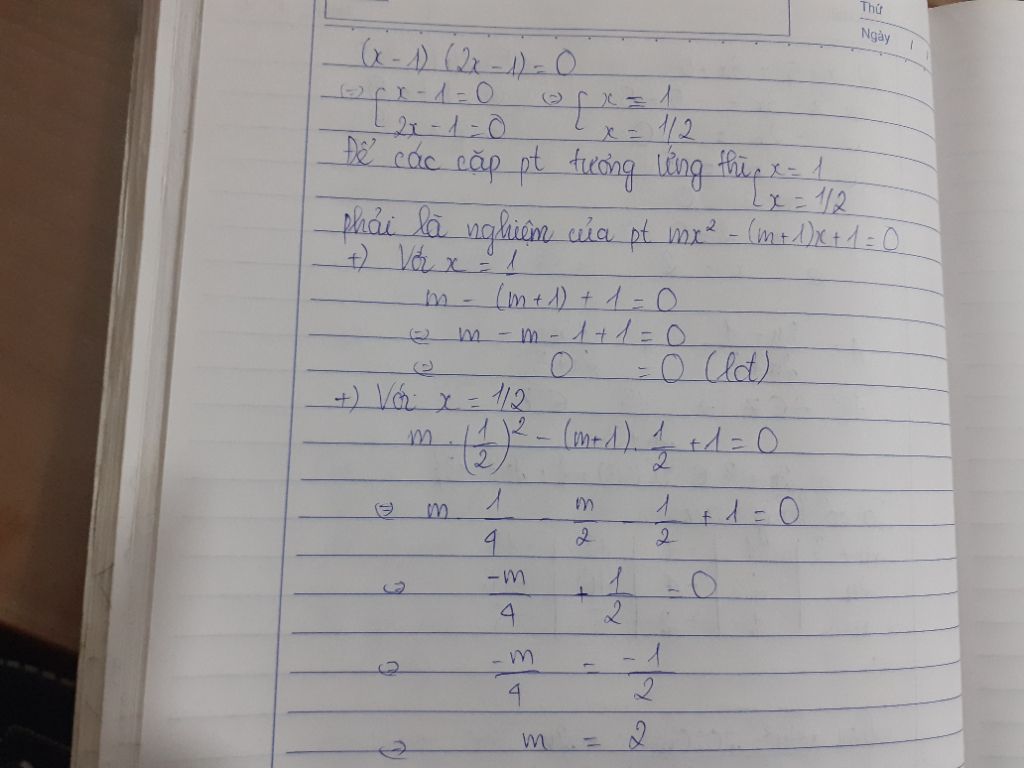 Thứ
Ngày / /
(x-1) (2x-1) = 0
⇔ { x-1 = 0 ⇔ { x = 1
2x-1 = 0 x = 1/2
Để các cặp pt tương ứng thì { x = 1
x = 1/2
phải là nghiệm của pt mx² - (m+1)x + 1 = 0
+) Với x = 1
m - (m+1) + 1 = 0
⇔ m - m - 1 + 1 = 0
⇔ 0 = 0 (lđ)
+) Với x = 1/2
m . (1/2)² - (m+1) . 1/2 + 1 = 0
⇔ m 1/4 - m/2 - 1/2 + 1 = 0
⇔ -m/4 + 1/2 = 0
⇔ -m/4 = -1/2
⇔ m = 2